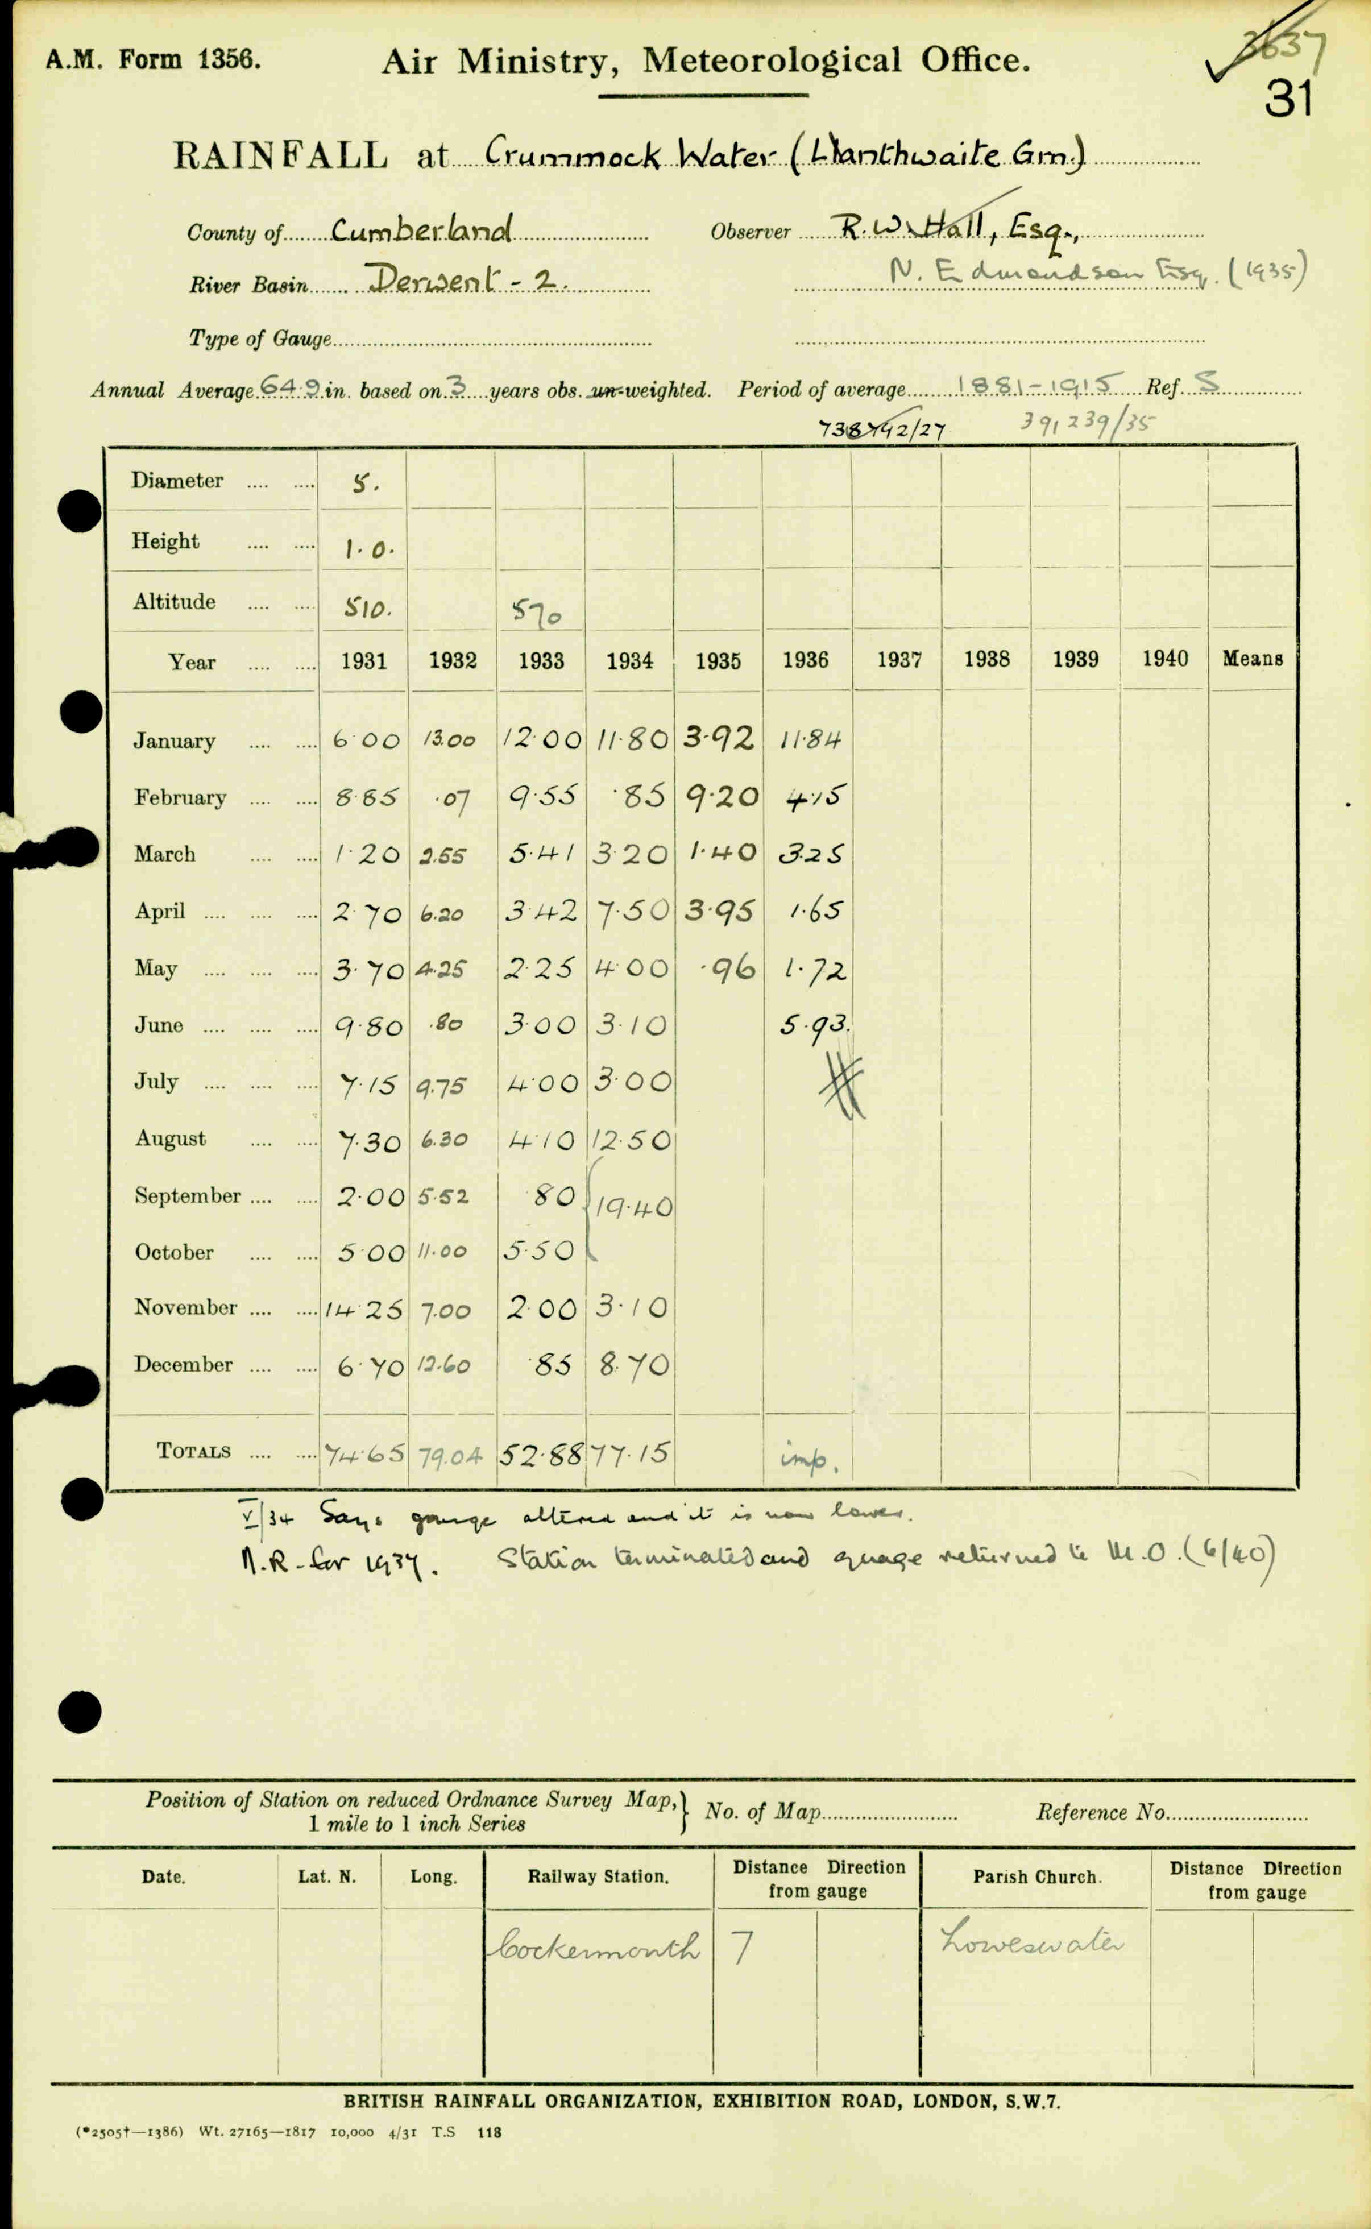 A.M. Form 1356.
Air Ministry, Meteorological Office.
3637
31
RAINFALL at Crummock Water (Llanthwaite Grn.)
County of Cumberland Observer R.W. Hall, Esq.,
River Basin Derwent - 2. N. Edmondson Esq. (1935)
Type of Gauge
Annual Average 64.9 in. based on 3 years obs. un-weighted. Period of average 1881-1915 Ref. S
738742/27 391239/35
Diameter 5.
Height 1.0.
Altitude 510. 570
Year 1931 1932 1933 1934 1935 1936 1937 1938 1939 1940 Means
January 6.00 13.00 12.00 11.80 3.92 11.84
February 8.85 .07 9.55 .85 9.20 4.15
March 1.20 2.55 5.41 3.20 1.40 3.25
April 2.70 6.20 3.42 7.50 3.95 1.65
May 3.70 4.25 2.25 4.00 .96 1.72
June 9.80 .80 3.00 3.10 5.93.
July 7.15 9.75 4.00 3.00
August 7.30 6.30 4.10 12.50
September 2.00 5.52 .80 19.40
October 5.00 11.00 5.50
November 14.25 7.00 2.00 3.10
December 6.70 12.60 .85 8.70
TOTALS 74.65 79.04 52.88 77.15 imp.
V/34 Says gauge altered and it is now lower.
N.R. for 1937. Station terminated and guage returned to M.O. (6/40)
Position of Station on reduced Ordnance Survey Map,} No. of Map Reference No.
1 mile to 1 inch Series
Date. Lat. N. Long. Railway Station. Distance Direction from gauge Parish Church. Distance Direction from gauge
Cockermouth 7 Loweswater
BRITISH RAINFALL ORGANIZATION, EXHIBITION ROAD, LONDON, S.W.7.
(*2505†—1386) Wt. 27165—1817 10,000 4/31 T.S 118